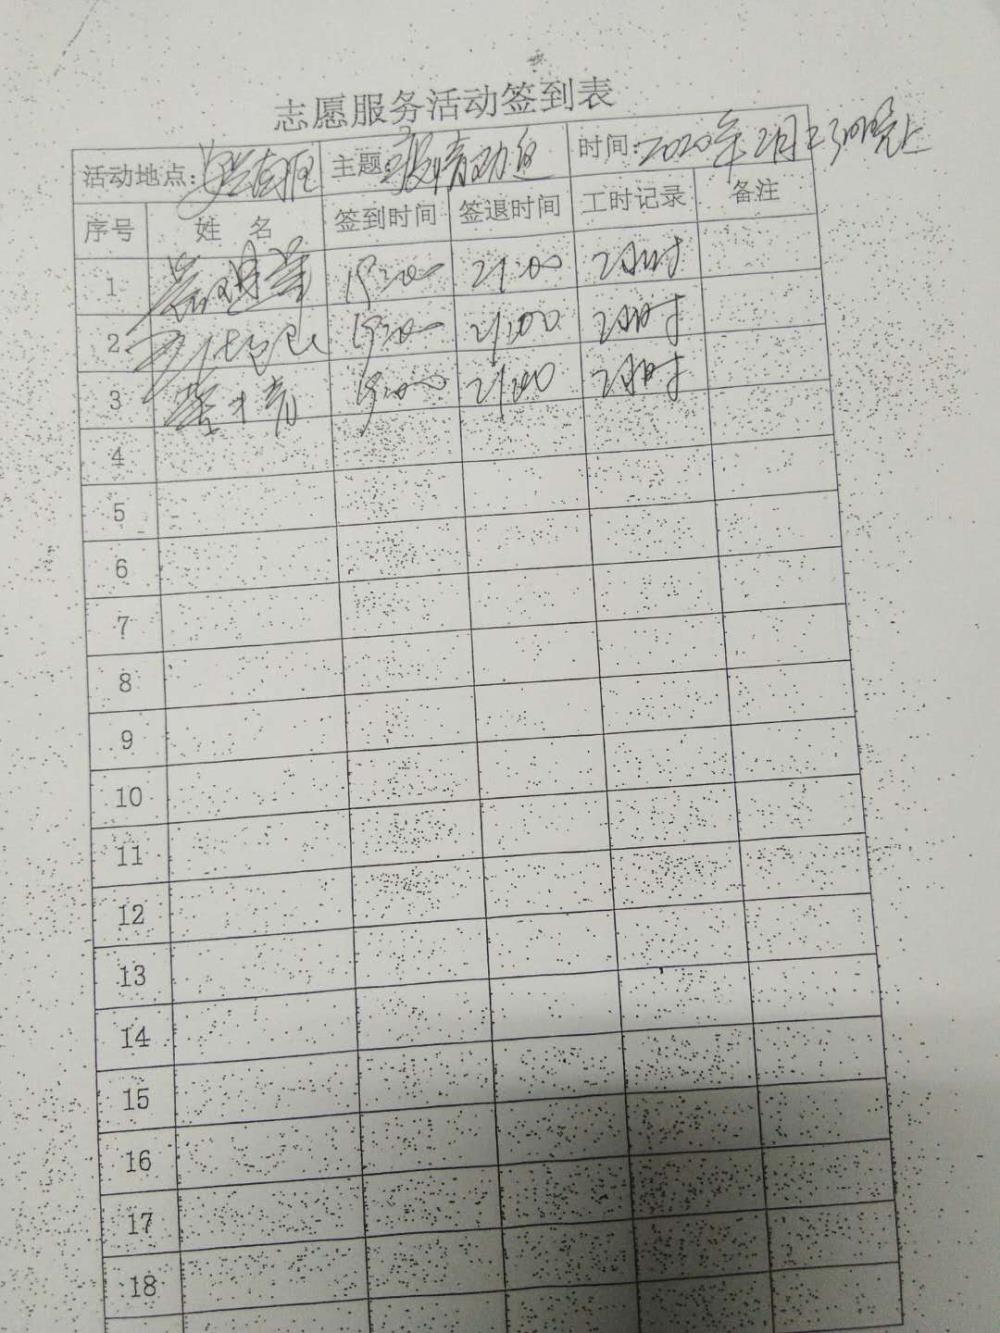 志愿服务活动签到表
活动地点: 主题:疫情劝返 时间:2020年2月23日晚上
序号 姓 名 签到时间 签退时间 工时记录 备注
1 19:00 21:00 2小时
2 19:00 21:00 2小时
3 19:00 21:00 2小时
4
5
6
7
8
9
10
11
12
13
14
15
16
17
18